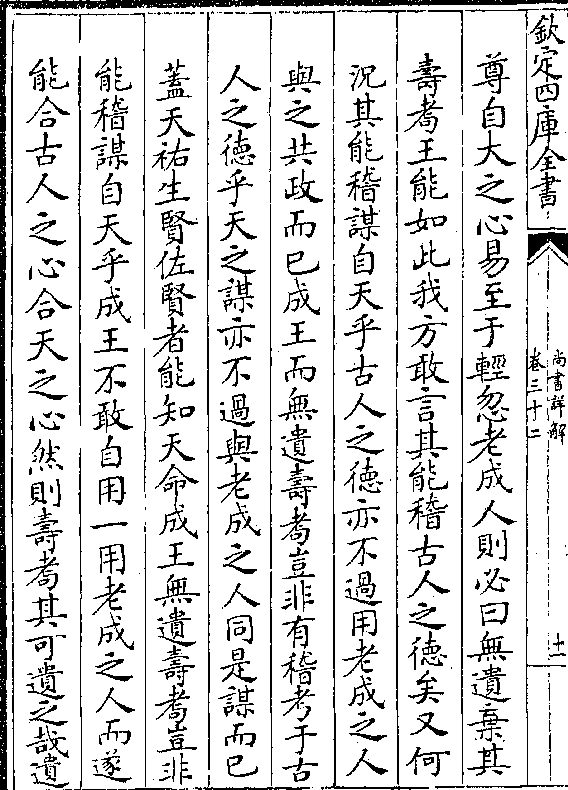 欽定四庫全書
尚書詳解
卷三十二
十一
尊自大之心易至于輕忽老成人則必曰無遺棄其
壽耇王能如此我方敢言其能稽古人之德矣又何
況其能稽謀自天乎古人之德亦不過用老成之人
與之共政而已成王而無遺壽耇豈非有稽考于古
人之德乎天之謀亦不過與老成之人同是謀而已
蓋天祐生賢佐賢者能知天命成王無遺壽耇豈非
能稽謀自天乎成王不敢自用一用老成之人而遂
能合古人之心合天之心然則壽耇其可遺之哉遺